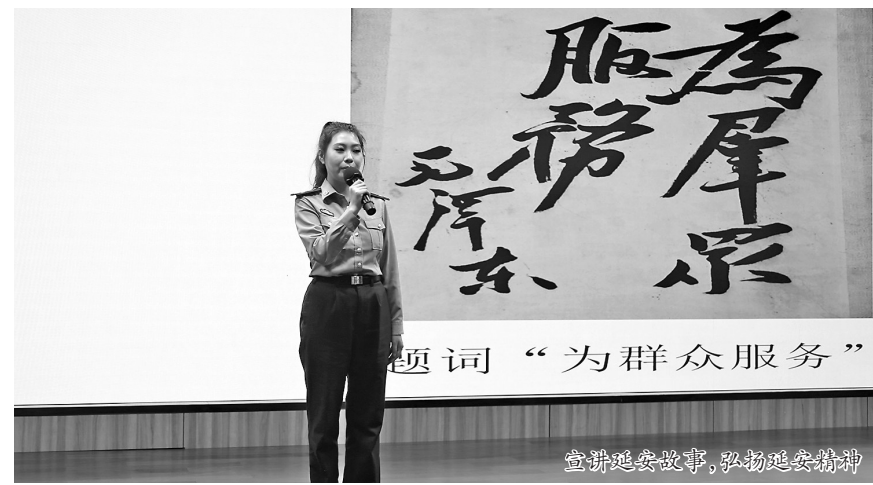 為羣眾
服務
毛澤东
题词“为群众服务”
宣讲延安故事,弘扬延安精神